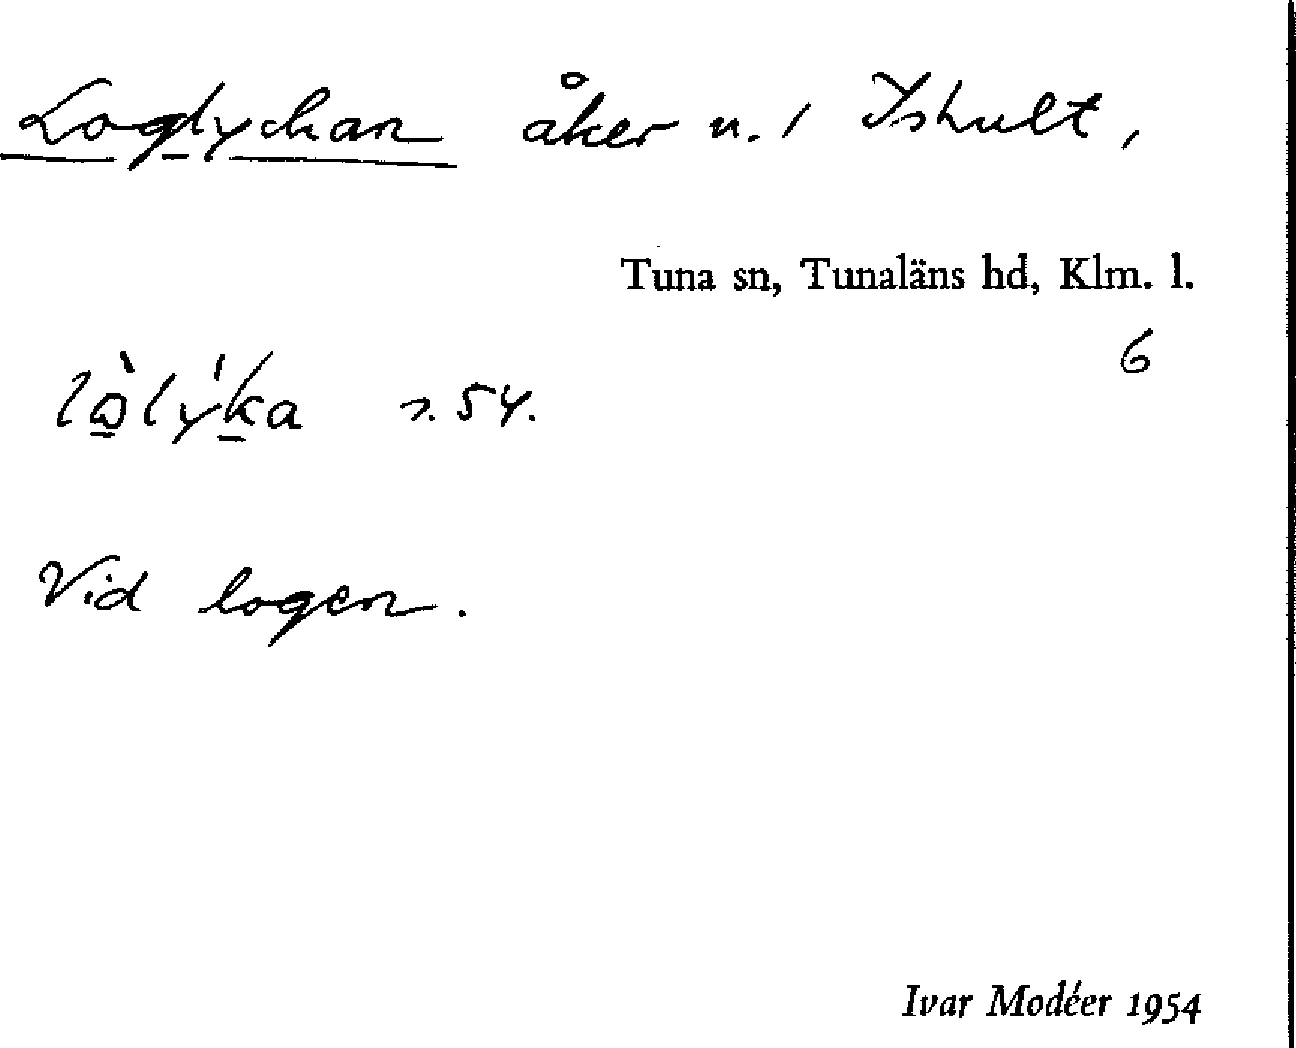 Loglyckan åker n. / Ishult,
Tuna sn, Tunaläns hd, Klm. l.
6
54.
Vid logen.
Ivar Modéer 1954